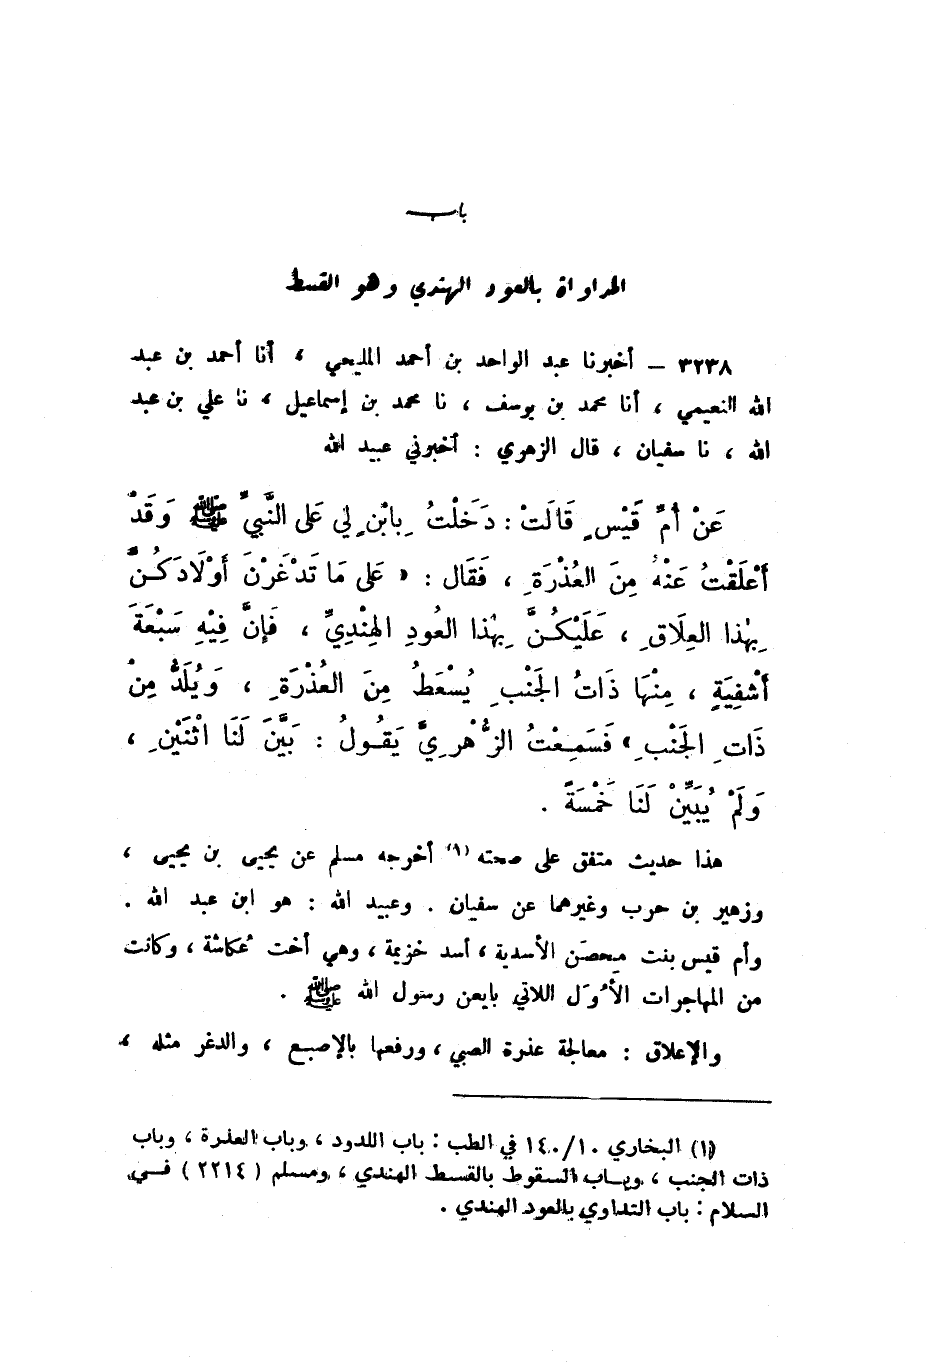 باب
المداواة بالعود الهندي وهو القسط
٣٢٣٨ – أخبرنا عبد الواحد بن أحمد المليحي ، أنا أحمد بن عبد
الله النعيمي ، أنا محمد بن يوسف ، نا محمد بن إسماعيل ، نا علي بن عبد
الله ، نا سفيان ، قال الزهري : أخبرني عبيد الله
عَنْ أُمِّ قَيْسٍ قَالَتْ : دَخَلْتُ بِابْنٍ لِي عَلَى النَّبِيِّ ﷺ وَقَدْ
أَعْلَقْتُ عَنْهُ مِنَ العُذْرَةِ ، فَقَال : « عَلَى مَا تَدْغَرْنَ أَوْلَادَكُنَّ
بِهٰذا العِلَاقِ ، عَلَيْكُنَّ بِهٰذا العُودِ الهِنْدِيِّ ، فَإِنَّ فِيْهِ سَبْعَةَ
أَشْفِيَةٍ ، مِنْهَا ذَاتُ الجَنْبِ يُسْعَطُ مِنَ العُذْرَةِ ، وَيُلَدُّ مِنْ
ذَاتِ الجَنْبِ » فَسَمِعْتُ الزُّهْرِيَّ يَقُولُ : بَيَّنَ لَنَا اثْنَيْنِ ،
وَلَمْ يُبَيِّنْ لَنَا خَمْسَةً .
هذا حديث متفق على صحته (١) أخرجه مسلم عن يحيى بن يحيى ،
وزهير بن حرب وغيرهما عن سفيان . وعبيد الله : هو ابن عبد الله .
وأم قيس بنت مِحصَن الأسدية ، أسد خزيمة ، وهي أخت عُكاشة ، وكانت
من المهاجرات الأُوَل اللاتي بايعن رسول الله ﷺ .
والإعلاق : معالجة عذرة الصبي ، ورفعها بالإصبع ، والدغر مثله ،
(١) البخاري ١٤٠/١٠ في الطب : باب اللدود ، وباب العذرة ، وباب
ذات الجنب ، وباب السقوط بالقسط الهندي ، ومسلم ( ٢٢١٤ ) في
السلام : باب التداوي بالعود الهندي .